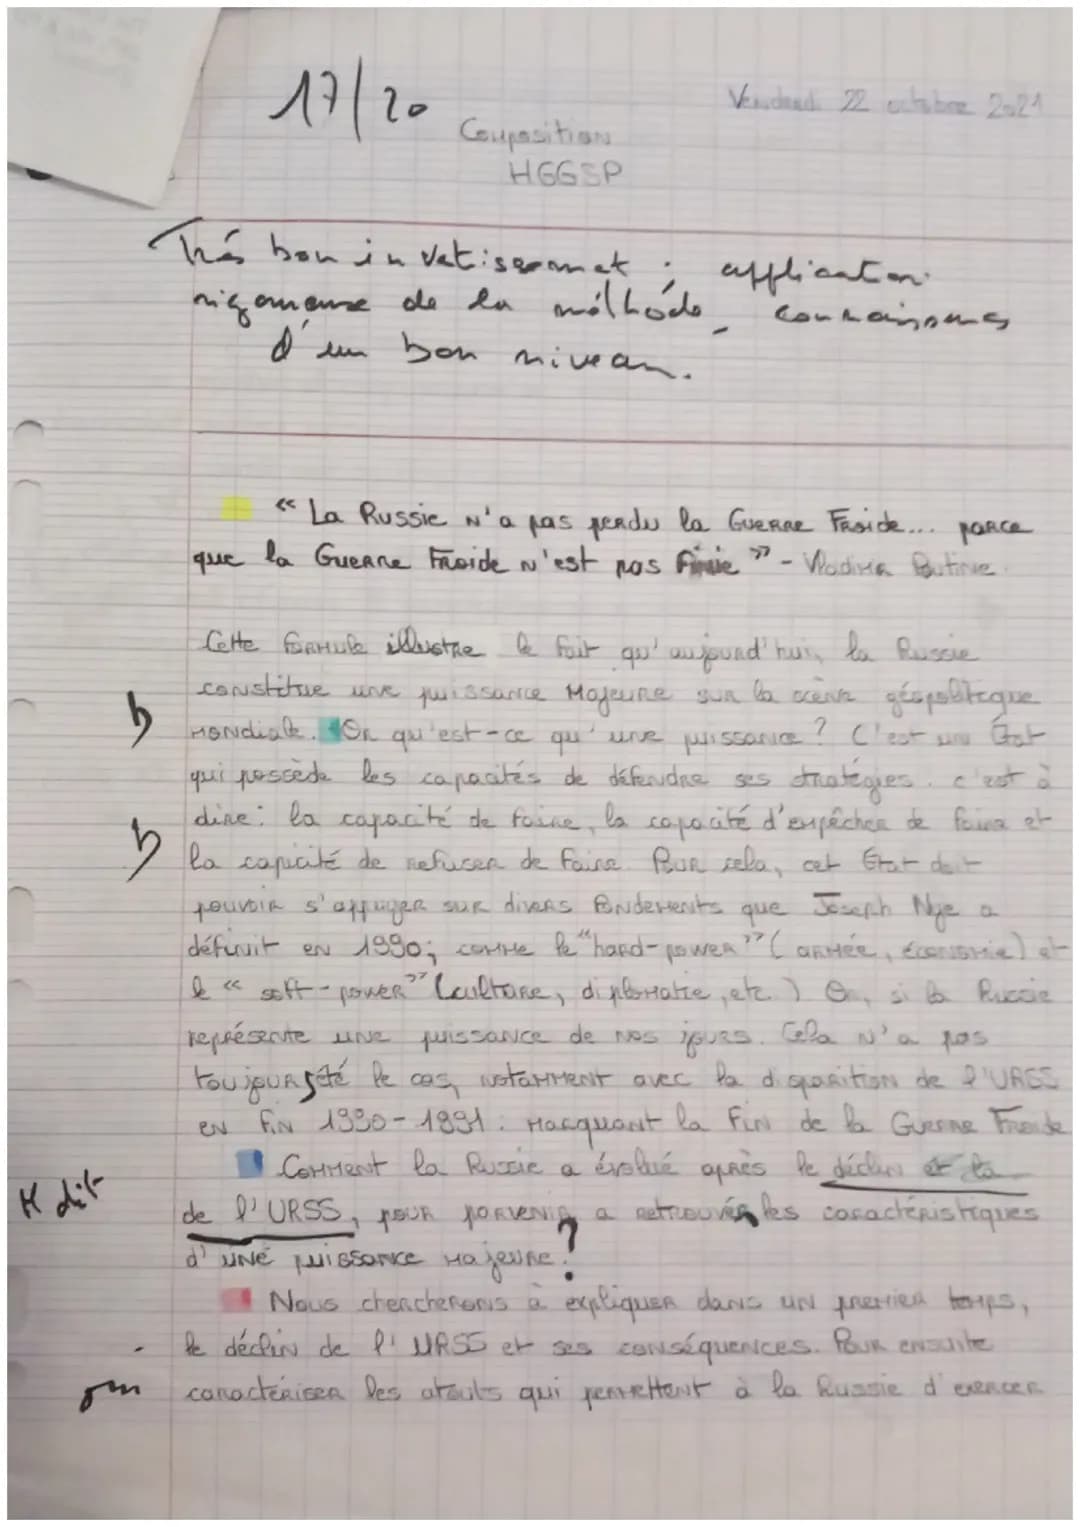 17/20
Vendredi 22 octobre 2021
Composition
HGGSP
Très bon investissement ; application
rigoureuse de la méthode, connaissances
d'un bon niveau.
« La Russie n'a pas perdu la Guerre Froide... parce
que la Guerre Froide n'est pas finie » - Vladimir Poutine.
Cette formule illustre le fait qu'aujourd'hui, la Russie
constitue une puissance majeure sur la scène géopolitique
mondiale. Or qu'est-ce qu'une puissance ? C'est un État
qui possède les capacités de défendre ses stratégies. c'est à
dire : la capacité de faire, la capacité d'empêcher de faire et
la capicité de refuser de faire. Pour cela, cet État doit
pouvoir s'appuyer sur divers fondements que Joseph Nye a
définit en 1990; comme le "hard-power" (armée, économie) et
le « soft-power » (culture, diplomatie, etc.) Or, si la Russie
représente une puissance de nos jours. Cela n'a pas
toujours été le cas, notamment avec la disparition de l'URSS
en fin 1990-1991 : marquant la fin de la Guerre Froide
Comment la Russie a évolué après le déclin et la
M dit
de l'URSS, pour parvenir a retrouver les caractéristiques
d'une puissance majeure ?
Nous chercherons à expliquer dans un premier temps,
le déclin de l'URSS et ses conséquences. Pour ensuite
caractériser les atouts qui permettent à la Russie d'exercer